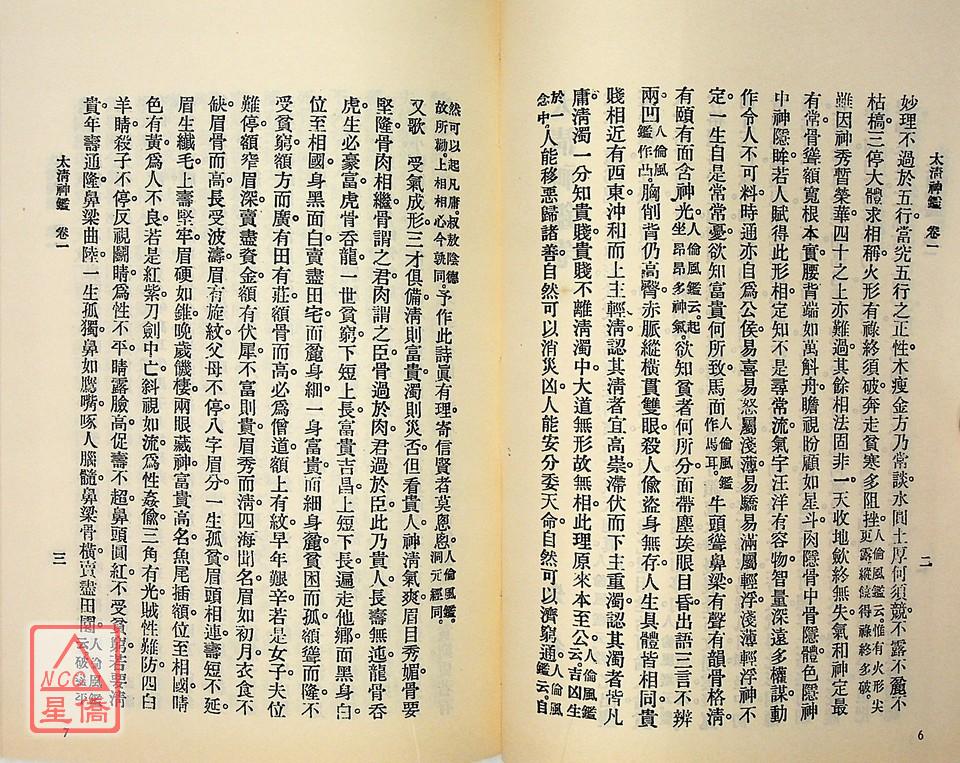 太清神鑑　卷一
二
妙理不過於五行。當究五行之正性。木瘦金方乃常談。水圓土厚何須競。不露不麄不
枯槁。三停大體求相稱。火形有祿終須破。奔走貧寒多阻挫。人倫風鑑云。惟有火形尖更露。縱饒得祿終多破。
雖因神秀暫榮華。四十之上亦難過。其餘相法固非一。天收地歛終無失。氣和神定最
有常。骨聳額寬根本實。腰背端如萬斛舟。瞻視盼顧如星斗。肉隱骨中骨隱體。色隱神
中神隱眸。若人賦得此形相。定知不是尋常流。氣宇汪洋有容物。智量深遠多權謀。動
作令人不可料。時通亦自為公侯。易喜易怒屬淺薄。易驕易滿屬輕浮。淺薄輕浮神不
定。一生自是常常憂。欲知富貴何所致。馬面作馬耳。人倫風鑑牛頭聳鼻梁。有聲有韻骨格清。
有頤有面含神光。人倫風鑑云。起坐昂昂多神氣。欲知貧者何所分。面帶塵埃眼目昏。出語三言不辨
兩。凹人倫風鑑作凸。胸削背仍高臀。赤脈縱橫貫雙眼。殺人偸盜身無存。人生具體皆相同。貴
賤相近有西東。沖和而上主輕清。認其清者宜高崇。滯伏而下主重濁。認其濁者皆凡
庸。清濁一分知貴賤。貴賤不離清濁中。大道無形故無相。此理原來本至公。人倫風鑑云。吉凶生
於一念中。人能移惡歸諸善。自然可以消災凶。人能安分委天命。自然可以濟窮通。人倫風鑑云。自
6
然可以起凡庸。叔敖陰德故所勵。上相相心今孰同。予作此詩眞有理。寄信賢者莫悤悤。人倫風鑑。洞元經同。
又歌　受氣成形三才俱。備清則富貴濁則災。否但看貴人神清氣爽。眉目秀媚骨要
堅隆。骨肉相繼骨謂之君。肉謂之臣。骨過於肉。君過於臣。此乃貴人長壽無迍。龍骨呑
虎。生必豪富。虎骨呑龍。一世貧窮。下短上長。富貴吉昌。上短下長。遍走他鄉。面黑身白
位至相國。身黑面白。賣盡田宅。面麄身細。一身富貴。面細身麄。貧困而孤。額聳而隆。不
受貧窮。額方而廣。有田有莊。額骨而高。必為僧道。額上有紋。早年艱辛。若是女子。夫位
難停。額窄眉深。賣盡資金。額有伏犀。不富則貴。眉秀而清。四海聞名。眉如初月。衣食不
缺。眉骨而高。長受波濤。眉有旋紋。父母不停。八字眉分。一生孤貧。眉頭相連。壽短不延。
眉生纖毛。上壽堅牢。眉硬如錐。晚歲饑棲。兩眼藏神。富貴高名。魚尾插額。位至相國。睛
色有黃。為人不良。若是紅紫。刀劍中亡。斜視如流。為性姦偸。三角有光。賊性難防。四白
羊睛。殺子不停。反視鬪睛。為性不平。睛露臉高。促壽不超。鼻頭圓紅。不受貧窮。若要清
貴。年壽通隆。鼻梁曲陸。一生孤獨。鼻如鷹嘴。啄人腦髓。鼻梁骨橫。賣盡田園。人倫風鑑
太清神鑑　卷一
三
7
NCC
星僑